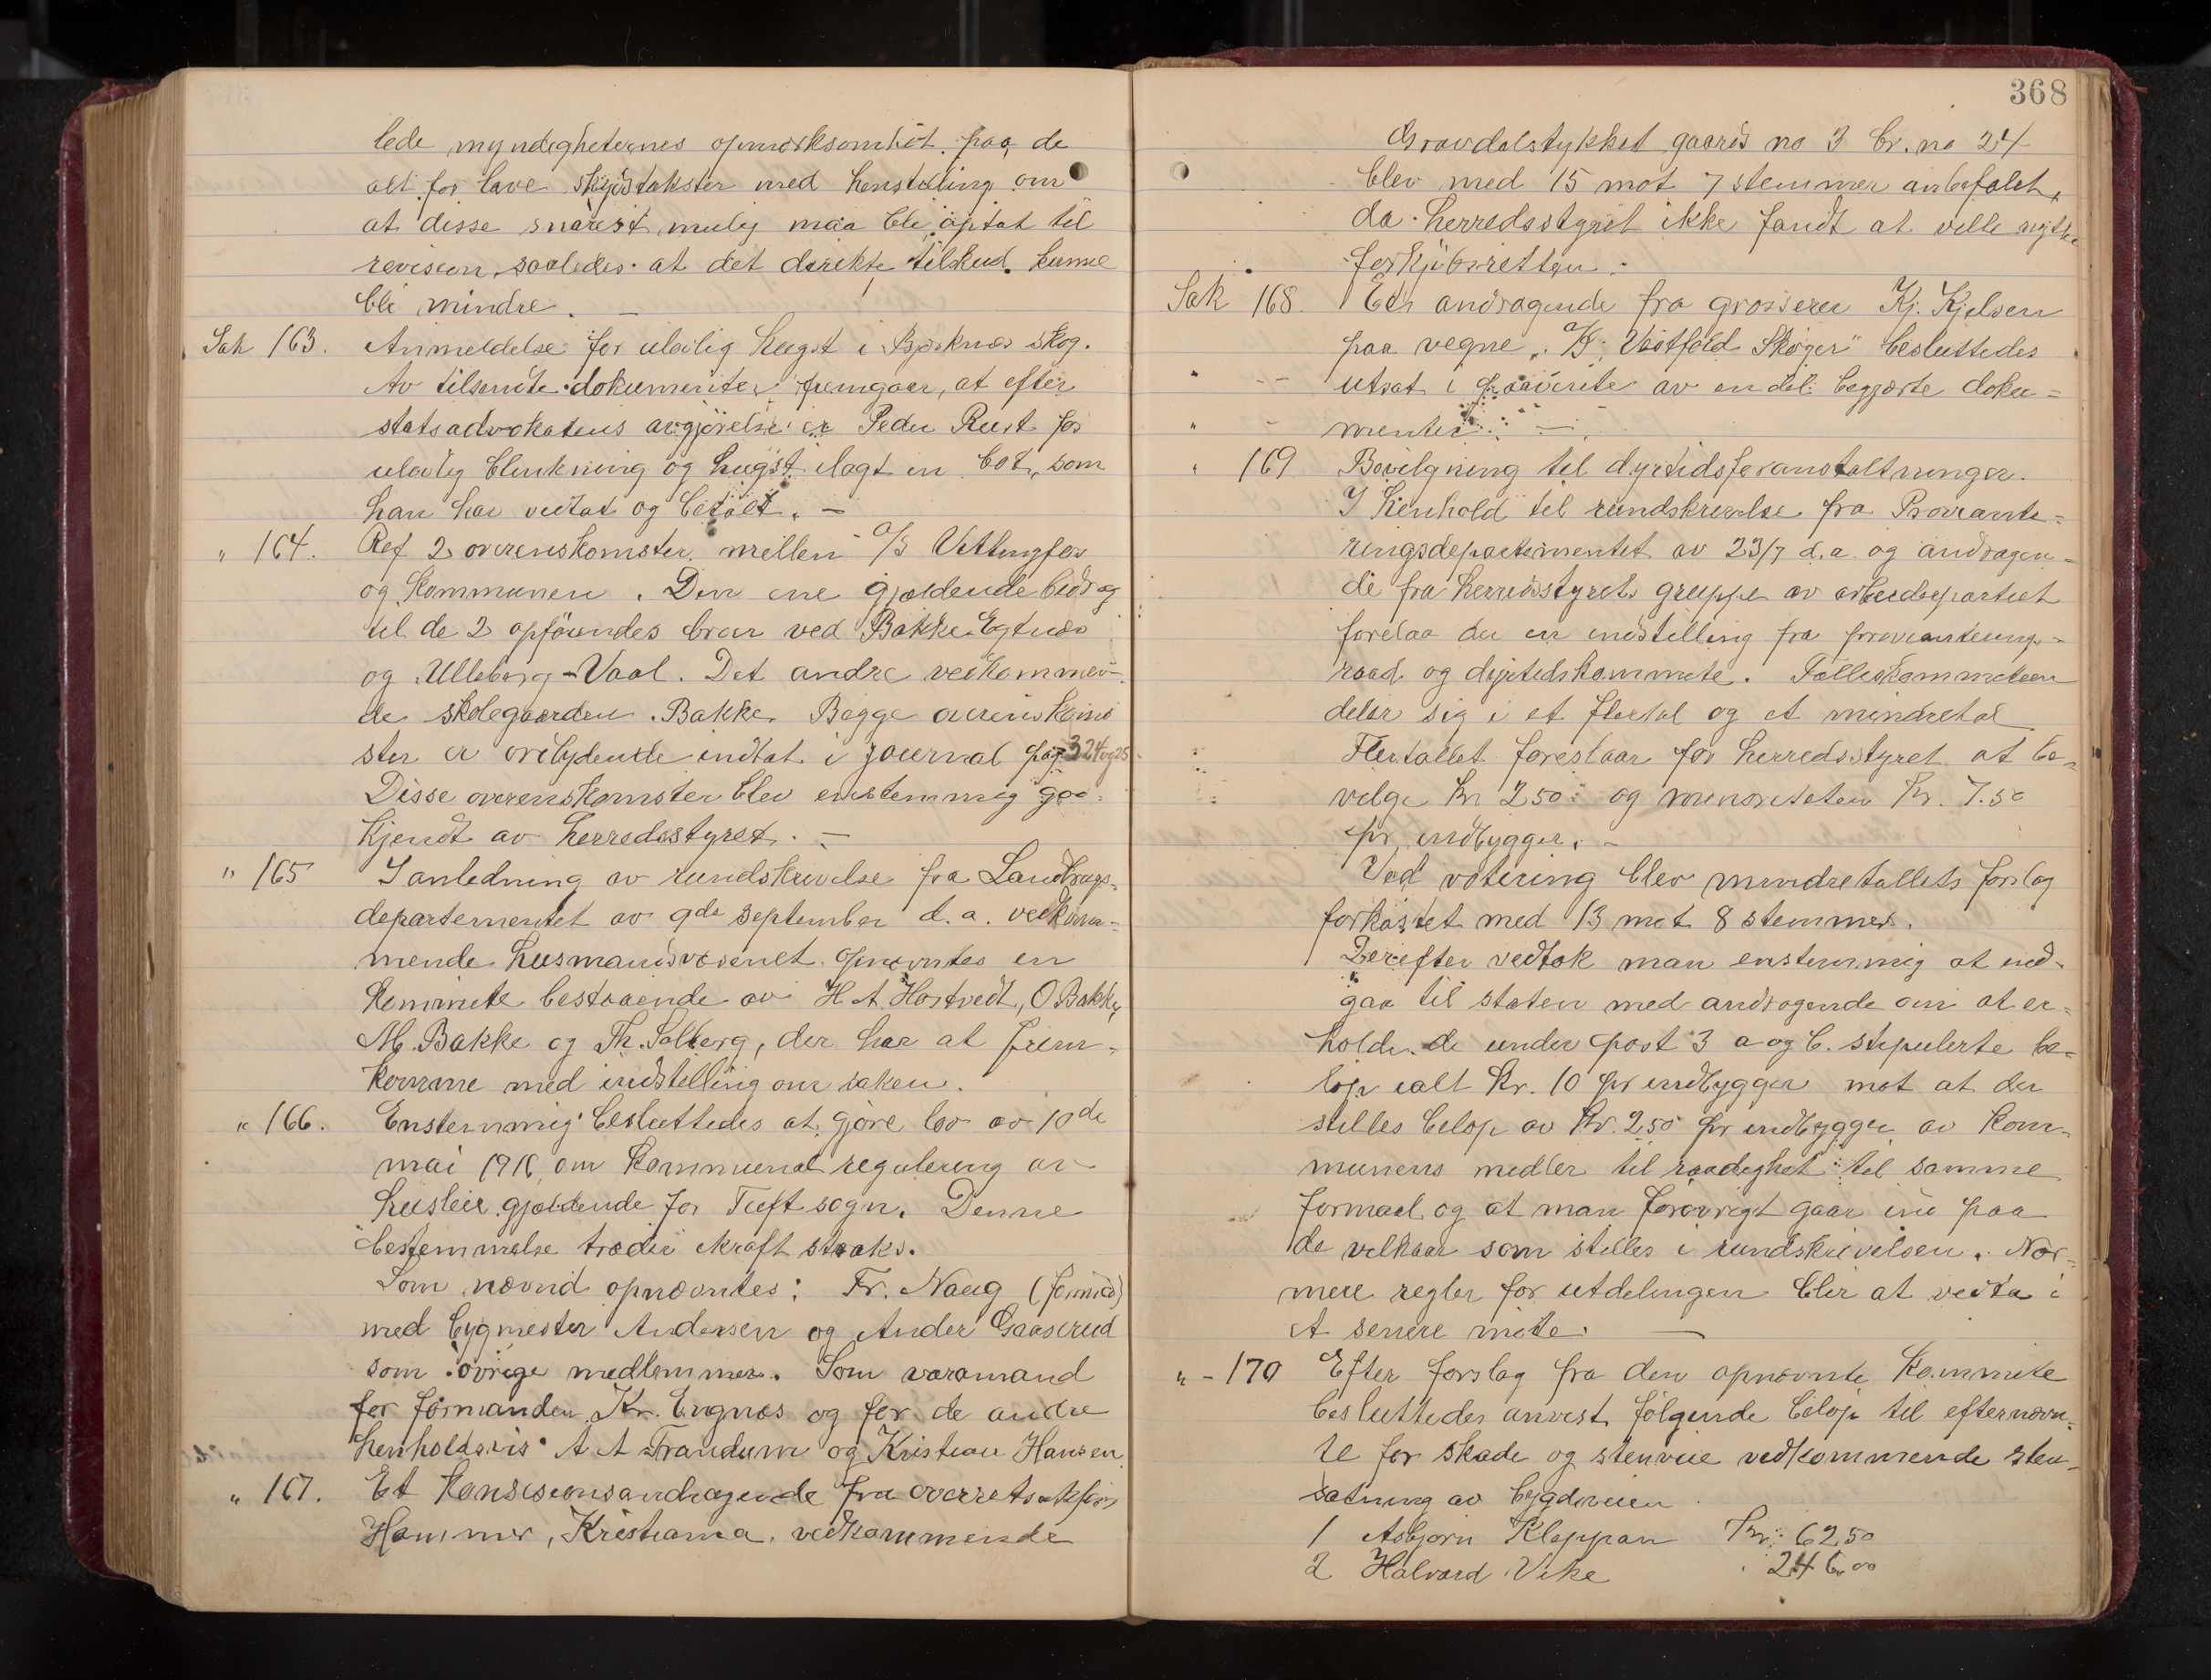 lede myndigheternes opmerksomhet paa de
alt for lave skydstakster med henstilling om
at disse snarest mulig maa bli optat til
revision, saaledes at det direkte tilskud kunne
bli mindre. —
Sak 163. Anmeldelse for ulovlig hugst i Bjerknes skog.
Av tilsendte dokumenter fremgaar, at efter
statsadvokatens avgjørelse er Peder Rust for
ulovlig blinkning og hugst ilagt en bot, som
han har vedtat og betalt. —
" 164. Ref 2 overenskomster mellem A/S Vittingfos
og Kommunen. Den ene gjældende bidrag
til de 2 opførendes broer ved Bakke-Egtnes
og Ulleberg-Vaal. Det andre vedkommen-
de skolegaarden Bakke. Begge overenskom
ster er ordlydende indtat i journal pag 324 og 25
Disse overenskomster blev enstemmig god-
kjendt av herredsstyret. —
" 165 I anledning av rundskrivelse fra Landbrugs-
departementet av 9de september d.a. vedkom-
mende husmandsvæsenet opnævntes en
kommite bestaaende av H A Hostvedt, O Bakke,
M. Bakke og Th. Solberg, der har at frem-
komme med indstilling om saken.
" 166. Enstemmig besluttedes at gjøre lov av 10de
mai 1916 om kommunal regulering av
husleie gjældende for Tuft sogn. Denne
bestemmelse træder ikraft straks.
Som nævnd opnævntes: Fr. Naug (formd)
med bygmester Andersen og Ander Gaaserud
som øvrige medlemmer. Som varamand
for formanden Kr. Engnes og for de andre
henholdsvis A A Trandum og Kristian Hansen
" 167. Et konsesionsandragende fra overretssakfører
Hammer, Kristiania, vedkommende
368
Gravdalstykket gaards no 3 br. no 24
blev med 15 mot 7 stemmer anbefalet,
da herredsstyret ikke fandt at ville nytte
forkjøbsretten. -
Sak 168. Et andragende fra grosserer Kj. Kjelsen
paa vegne "A/S Vestfold Skoger" besluttedes
utsat i paavente av en del begjærte doku-
menter. —
" 169 Bevilgning til dyrtidsforanstaltninger.
I henhold til rundskrivelse fra Proviante-
ringsdepartementet av 23/7 d.a. og andragen-
de fra herredsstyrets gruppe av arbeiderpartiet
forelaa der en indstilling fra provianterings-
raad og dyrtidskommite. Felleskommiteen
deler sig i et flertal og et mindretal
Flertallet foreslaar for herredsstyret at be-
vilge Kr 2.50 og minoriteten Kr. 7.50
pr. indbygger. -
Ved votering blev mindretallets forslag
forkastet med 13 mot 8 stemmer.
Derefter vedtok man enstemmig at ind-
gaa til staten med andragende om at er-
holde de under post 3 a og b. stipulerte be-
løp ialt kr. 10 pr indbygger mot at der
stilles beløp av kr. 2.50 pr indbygger av kom-
munens midler til raadighet til samme
formaal og at man forøvrigt gaar ind paa
de vilkaar som stilles i rundskrivelsen. Nær-
mere regler for utdelingen blir at vedta i
et senere møte. —
" - 170 Efter forslag fra den opnævnte kommite
besluttedes anvist følgende beløp til efternævn-
te for skade og stenveie vedkommende sten-
sætning av bygdeveien
1 Asbjørn Kloppan Kr. 62.50
2 Halvard Vike " 246.00